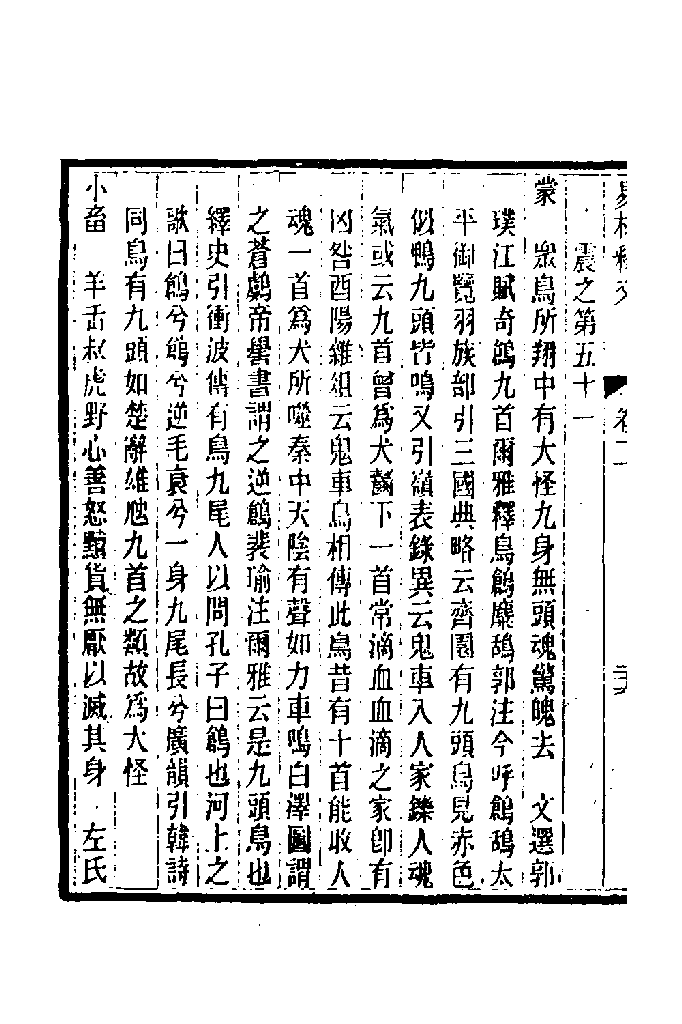 易林釋文　卷二　
震之第五十一
蒙　眾鳥所翔中有大怪九身無頭魂驚魄去　文選郭
璞江賦奇鶬九首爾雅釋鳥鶬麋鴰郭注今呼鶬鴰太
平御覽羽族部引三國典略云齊園有九頭鳥見赤色
似鴨九頭皆鳴又引嶺表錄異云鬼車入人家鑠人魂
氣或云九首曾為犬齧下一首常滴血血滴之家卽有
凶咎酉陽雜俎云鬼車鳥相傳此鳥昔有十首能收人
魂一首為犬所噬秦中天陰有聲如力車鳴白澤圖謂
之蒼鸆帝嚳書謂之逆鶬裴瑜注爾雅云是九頭鳥也
繹史引衝波傳有鳥九尾人以問孔子曰鶬也河上之
歌曰鶬兮鴰兮逆毛衰兮一身九尾長兮廣韻引韓詩
同鳥有九頭如楚辭雄虺九首之類故為大怪
小畜　羊舌叔虎野心善怒黷貨無厭以滅其身　左氏